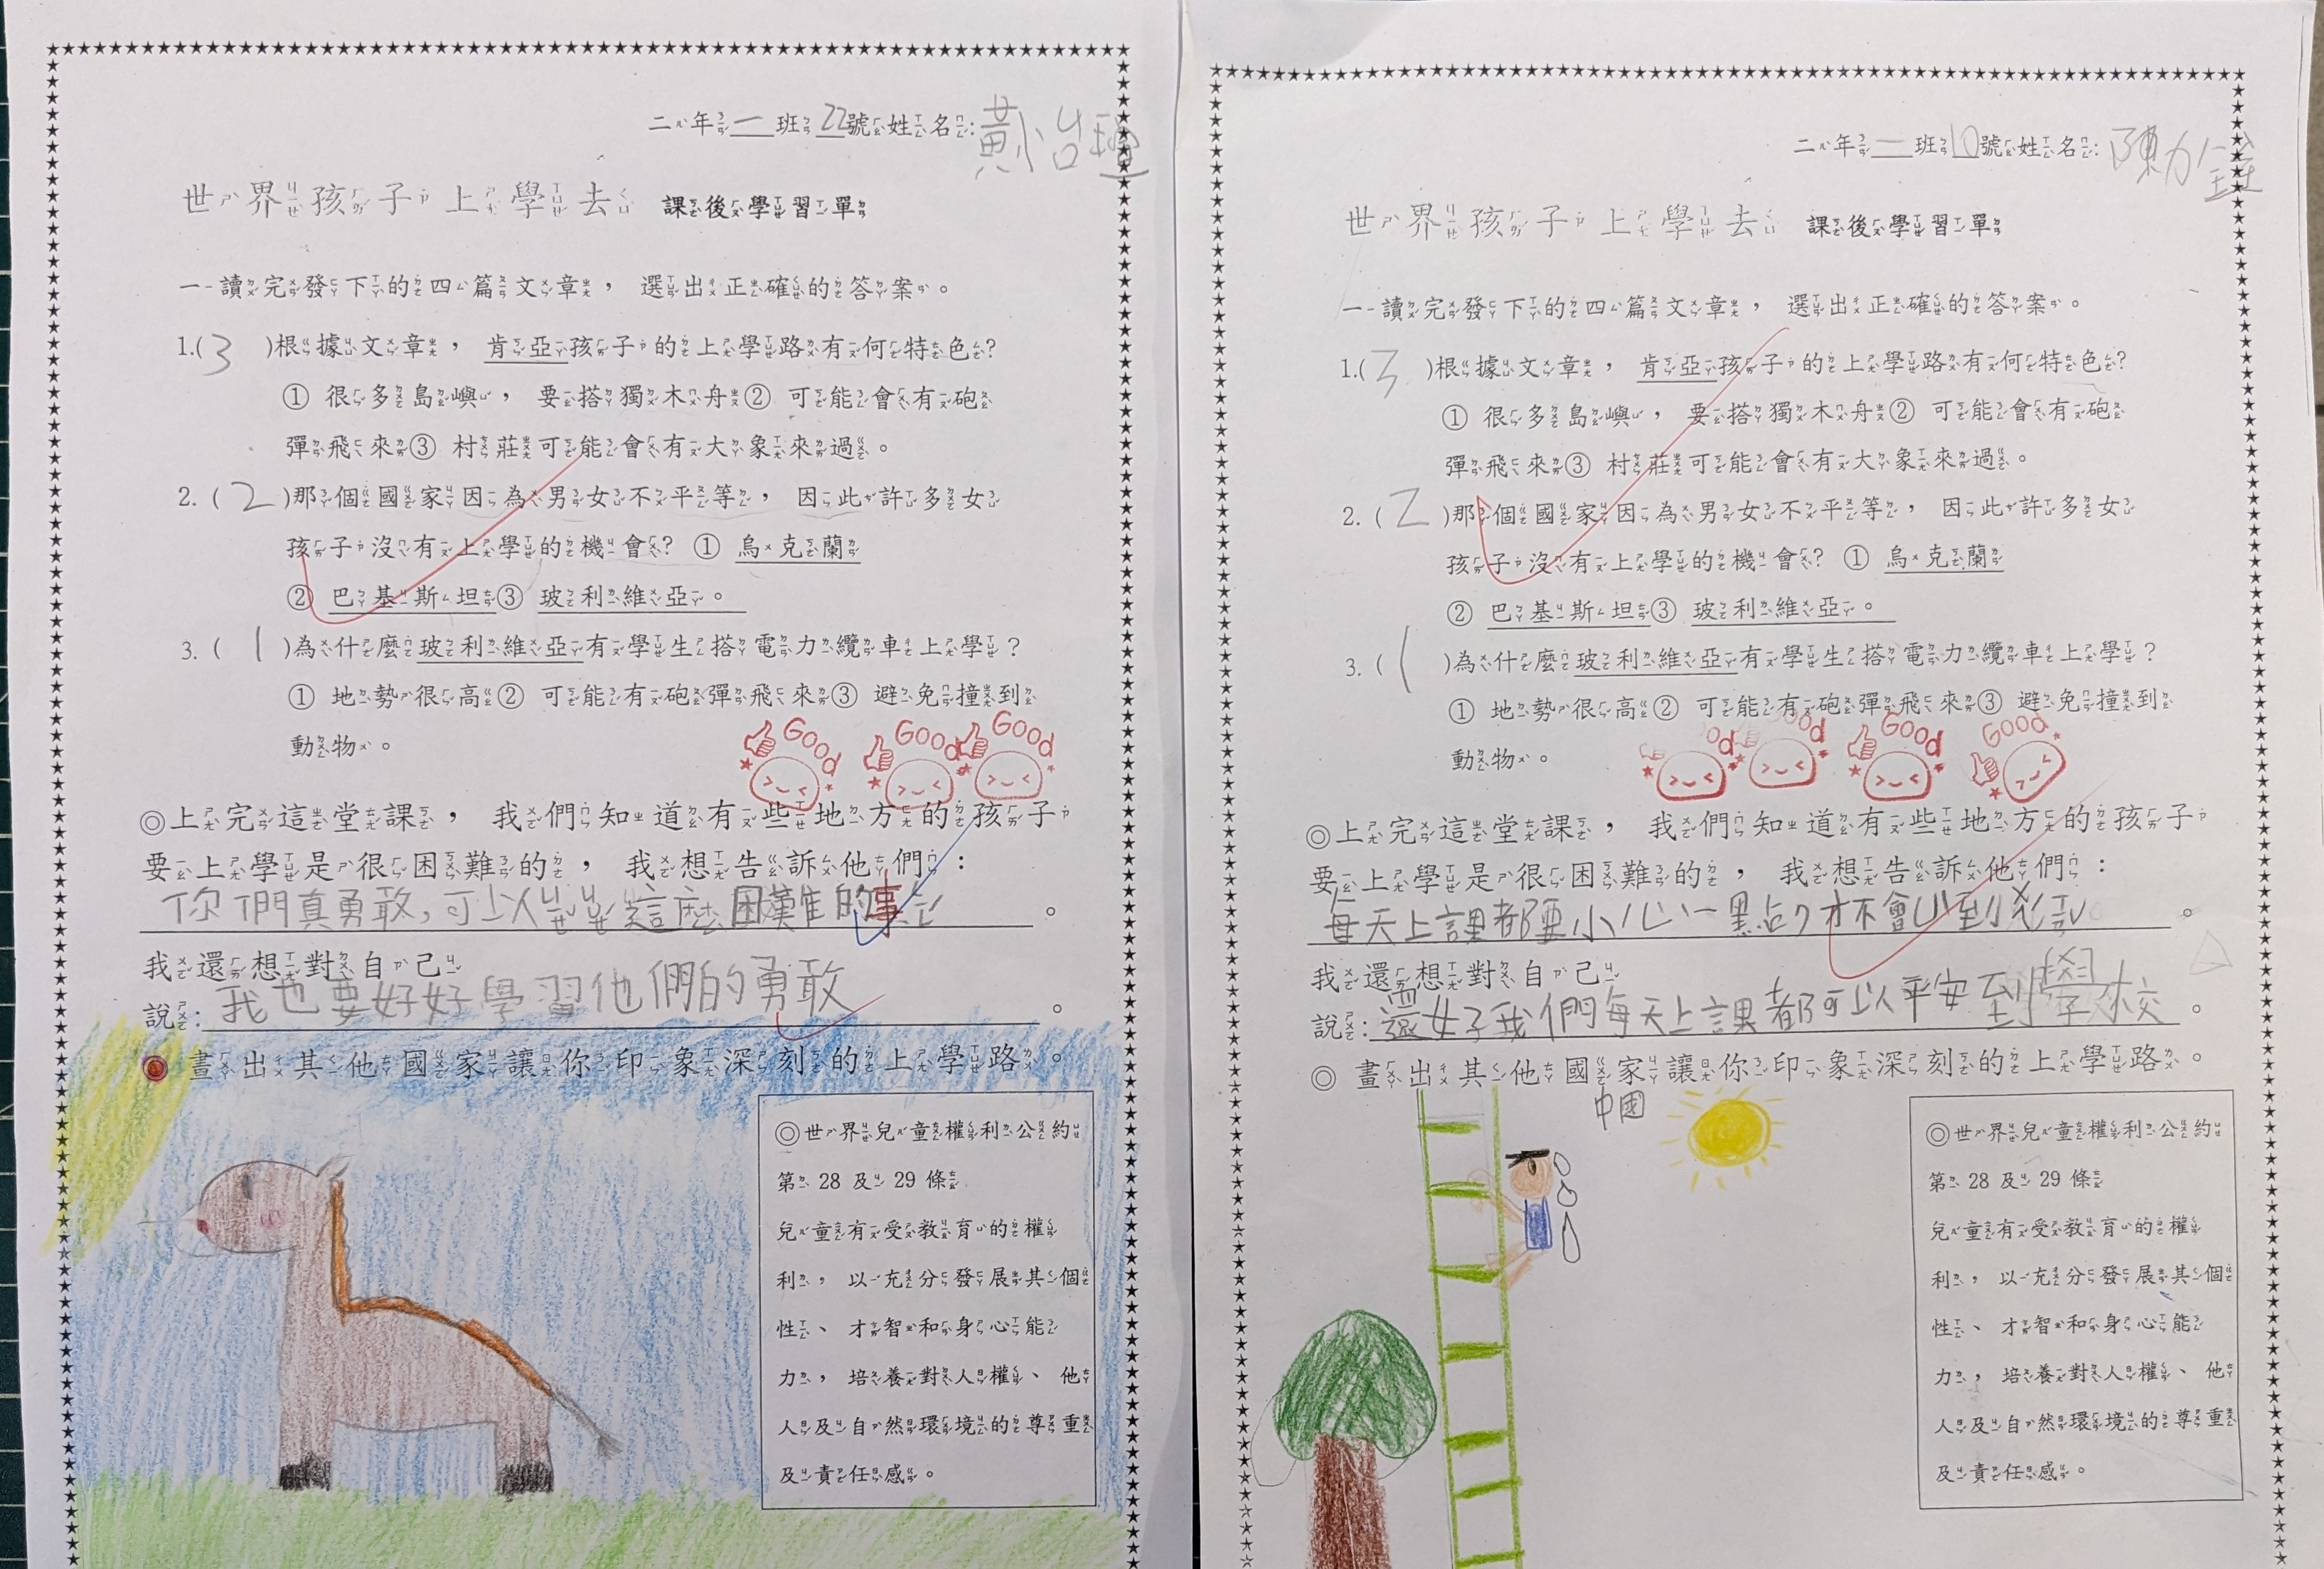 二年一班22號姓名:黃小台
世界孩子上學去 課後學習單
一-讀完發下的四篇文章，選出正確的答案。
1.(3)根據文章，肯亞孩子的上學路有何特色?
① 很多島嶼，要搭獨木舟② 可能會有砲
彈飛來③ 村莊可能會有大象來過。
2.(2)那個國家因為男女不平等，因此許多女
孩子沒有上學的機會? ① 烏克蘭
② 巴基斯坦③ 玻利維亞。
3.(1)為什麼玻利維亞有學生搭電力纜車上學?
① 地勢很高② 可能有砲彈飛來③ 避免撞到
動物。
Good Good Good
◎上完這堂課，我們知道有些地方的孩子
要上學是很困難的，我想告訴他們：
你們真勇敢,可以ㄐㄧㄝˇㄐㄩㄝˊ這麼困難的事。
我還想對自己
說:我也要好好學習他們的勇敢。
◎ 畫出其他國家讓你印象深刻的上學路。
◎世界兒童權利公約
第 28 及 29 條
兒童有受教育的權
利，以充分發展其個
性、才智和身心能
力，培養對人權、他
人及自然環境的尊重
及責任感。
二年一班10號姓名:陳力
世界孩子上學去 課後學習單
一-讀完發下的四篇文章，選出正確的答案。
1.(3)根據文章，肯亞孩子的上學路有何特色?
① 很多島嶼，要搭獨木舟② 可能會有砲
彈飛來③ 村莊可能會有大象來過。
2.(2)那個國家因為男女不平等，因此許多女
孩子沒有上學的機會? ① 烏克蘭
② 巴基斯坦③ 玻利維亞。
3.(1)為什麼玻利維亞有學生搭電力纜車上學?
① 地勢很高② 可能有砲彈飛來③ 避免撞到
動物。
Good Good Good Good
◎上完這堂課，我們知道有些地方的孩子
要上學是很困難的，我想告訴他們：
每天上課都要小心一點ㄦ才不會
我還想對自己
說:還好我們每天上課都可以平安到學校。
◎ 畫出其他國家讓你印象深刻的上學路。
中國
◎世界兒童權利公約
第 28 及 29 條
兒童有受教育的權
利，以充分發展其個
性、才智和身心能
力，培養對人權、他
人及自然環境的尊重
及責任感。